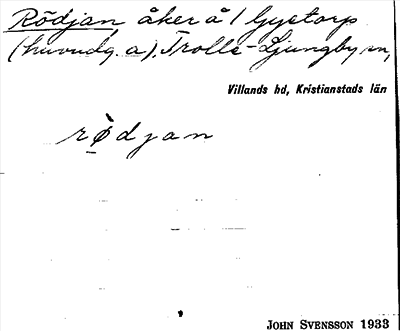 Rödjan åker å 1 Gystorp
(huvudg. a). Trolle-Ljungby sn,
Villands hd, Kristianstads län
rø̀djan
JOHN SVENSSON 1933